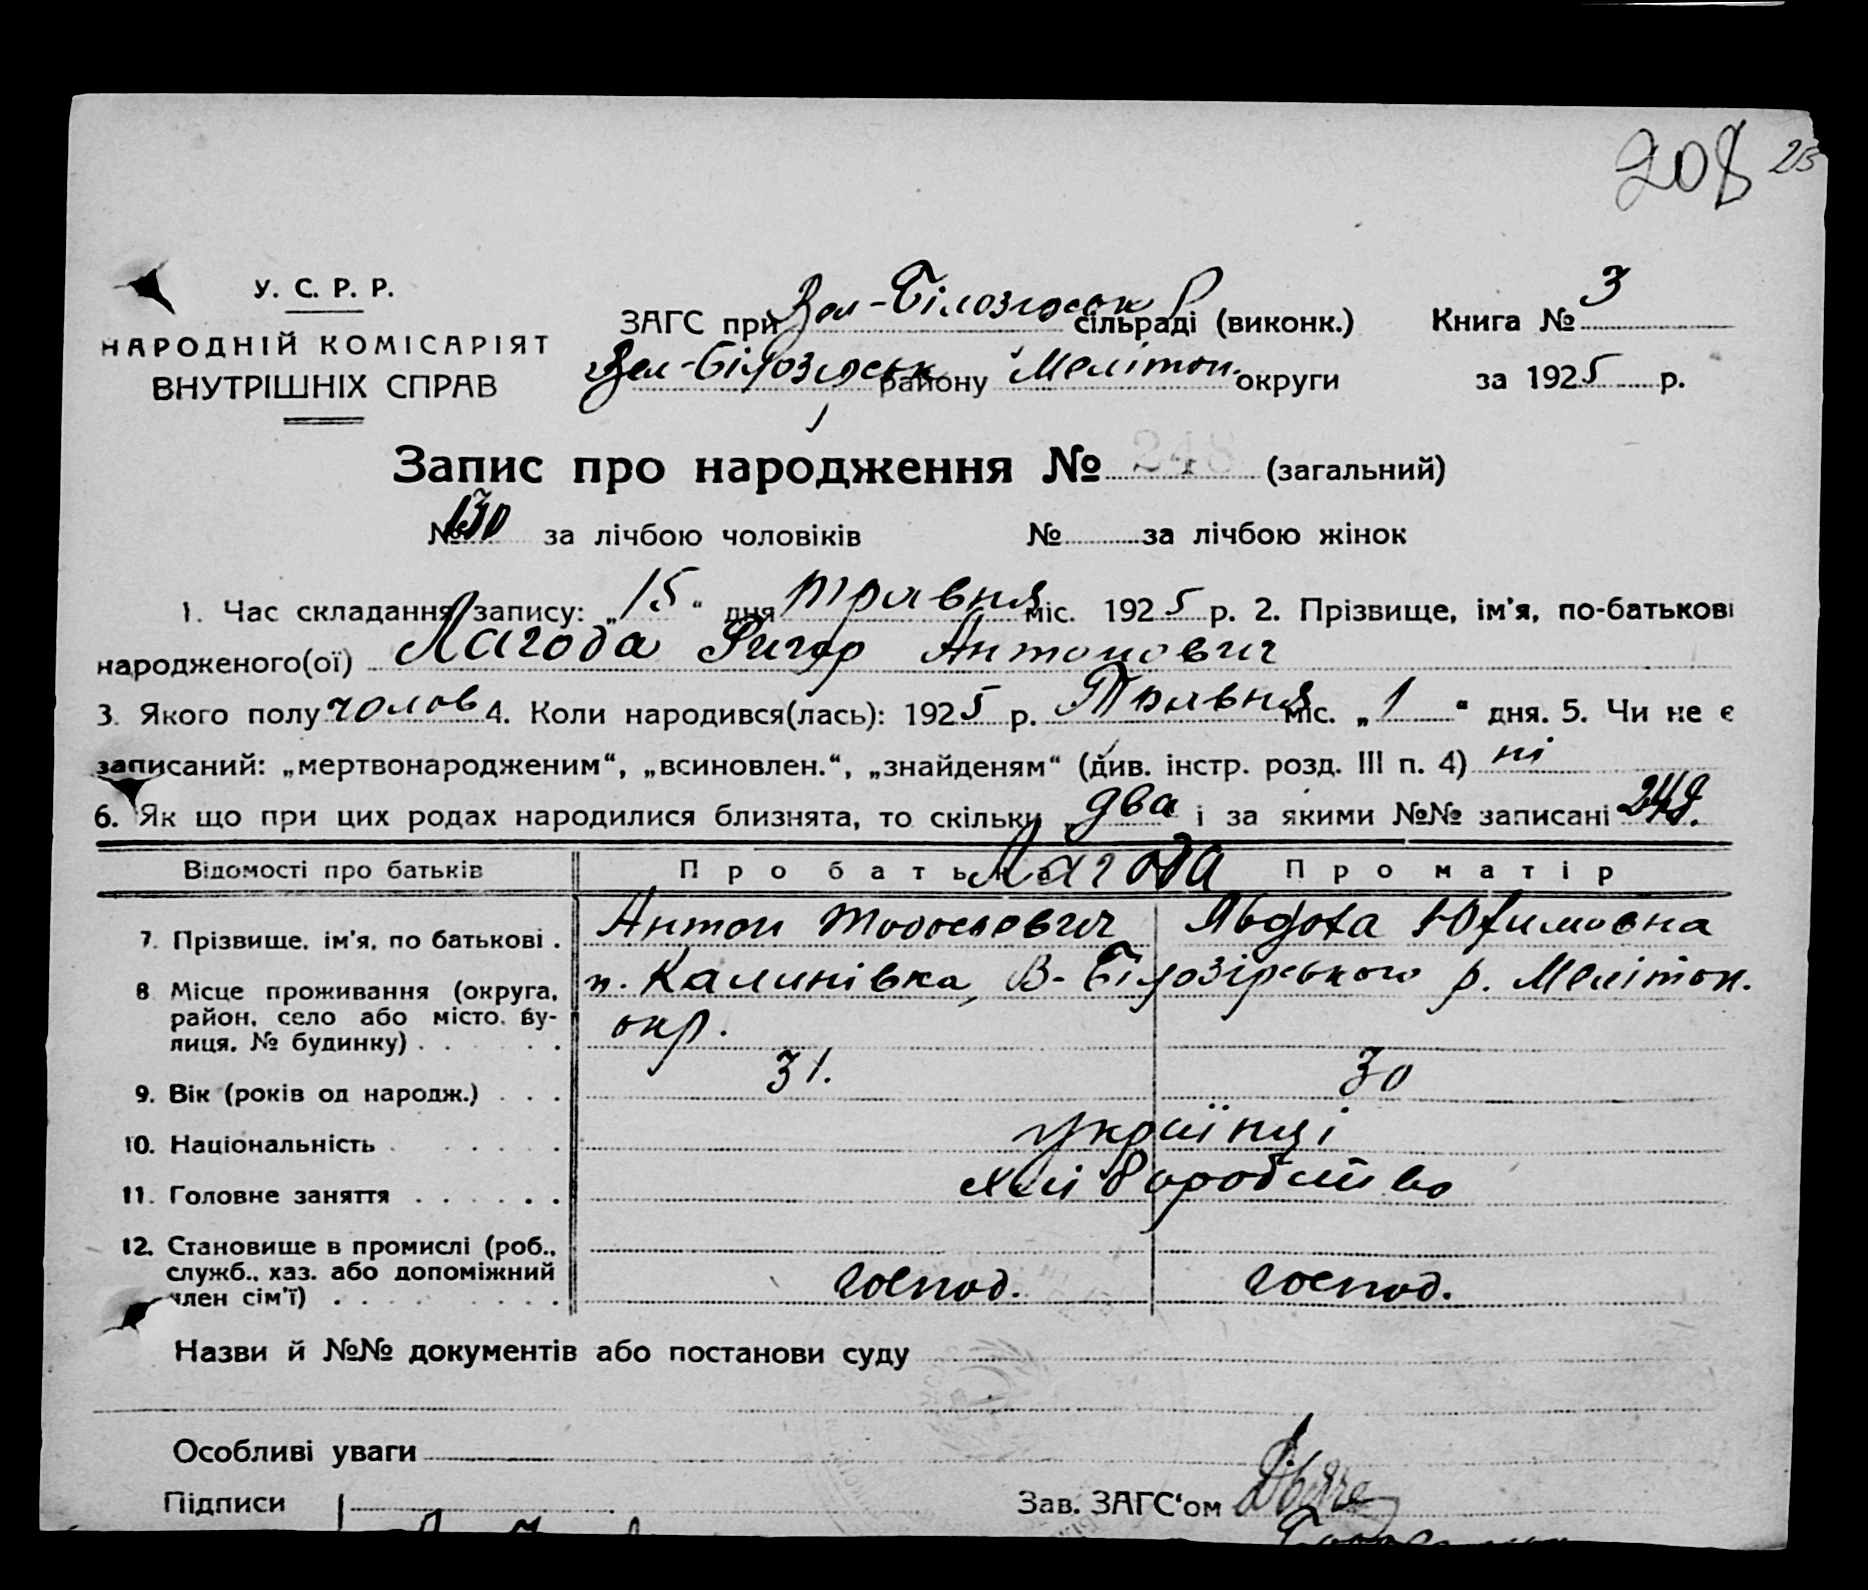 208 23
У. С. Р. Р.
НАРОДНІЙ КОМІСАРІЯТ
ВНУТРІШНІХ СПРАВ
ЗАГС при сільраді (виконк.)
району Мелітоп. округи
Книга № 3
за 1925 р.
Запис про народження № 248 (загальний)
№ 130 за лічбою чоловіків № за лічбою жінок
1. Час складання запису: „15“ дня травня міс. 1925 р. 2. Прізвище, ім'я, по-батькові
народженого(ої) Лагода Григор Антонович
3. Якого полу чолов 4. Коли народився(лась): 1925 р. Травня міс. „1“ дня. 5. Чи не є
записаний: „мертвонародженим“, „всиновлен.“, „знайденям“ (див. інстр. розд. III п. 4) ні
6. Як що при цих родах народилися близнята, то скільки „два і за якими №№ записані 248.
Відомості про батьків Про батька Про матір
Лагода
7. Прізвище, ім'я, по батькові . Антон Явдоха Юхимовна
8 Місце проживання (округа, район, село або місто, вулиця, № будинку) . . . . . .
п. Калинівка, В-Білозірського р. Мелітоп.
окр.
9. Вік (років од народж.) . . . 31. 30
10. Національність . . . . . . українці
11. Головне заняття . . . . . . хліборобство
12. Становище в промислі (роб., служб., хаз. або допоміжний член сім'ї) . . . . . . . . .
господ. господ.
Назви й №№ документів або постанови суду
Особливі уваги
Підписи Зав. ЗАГС'ом